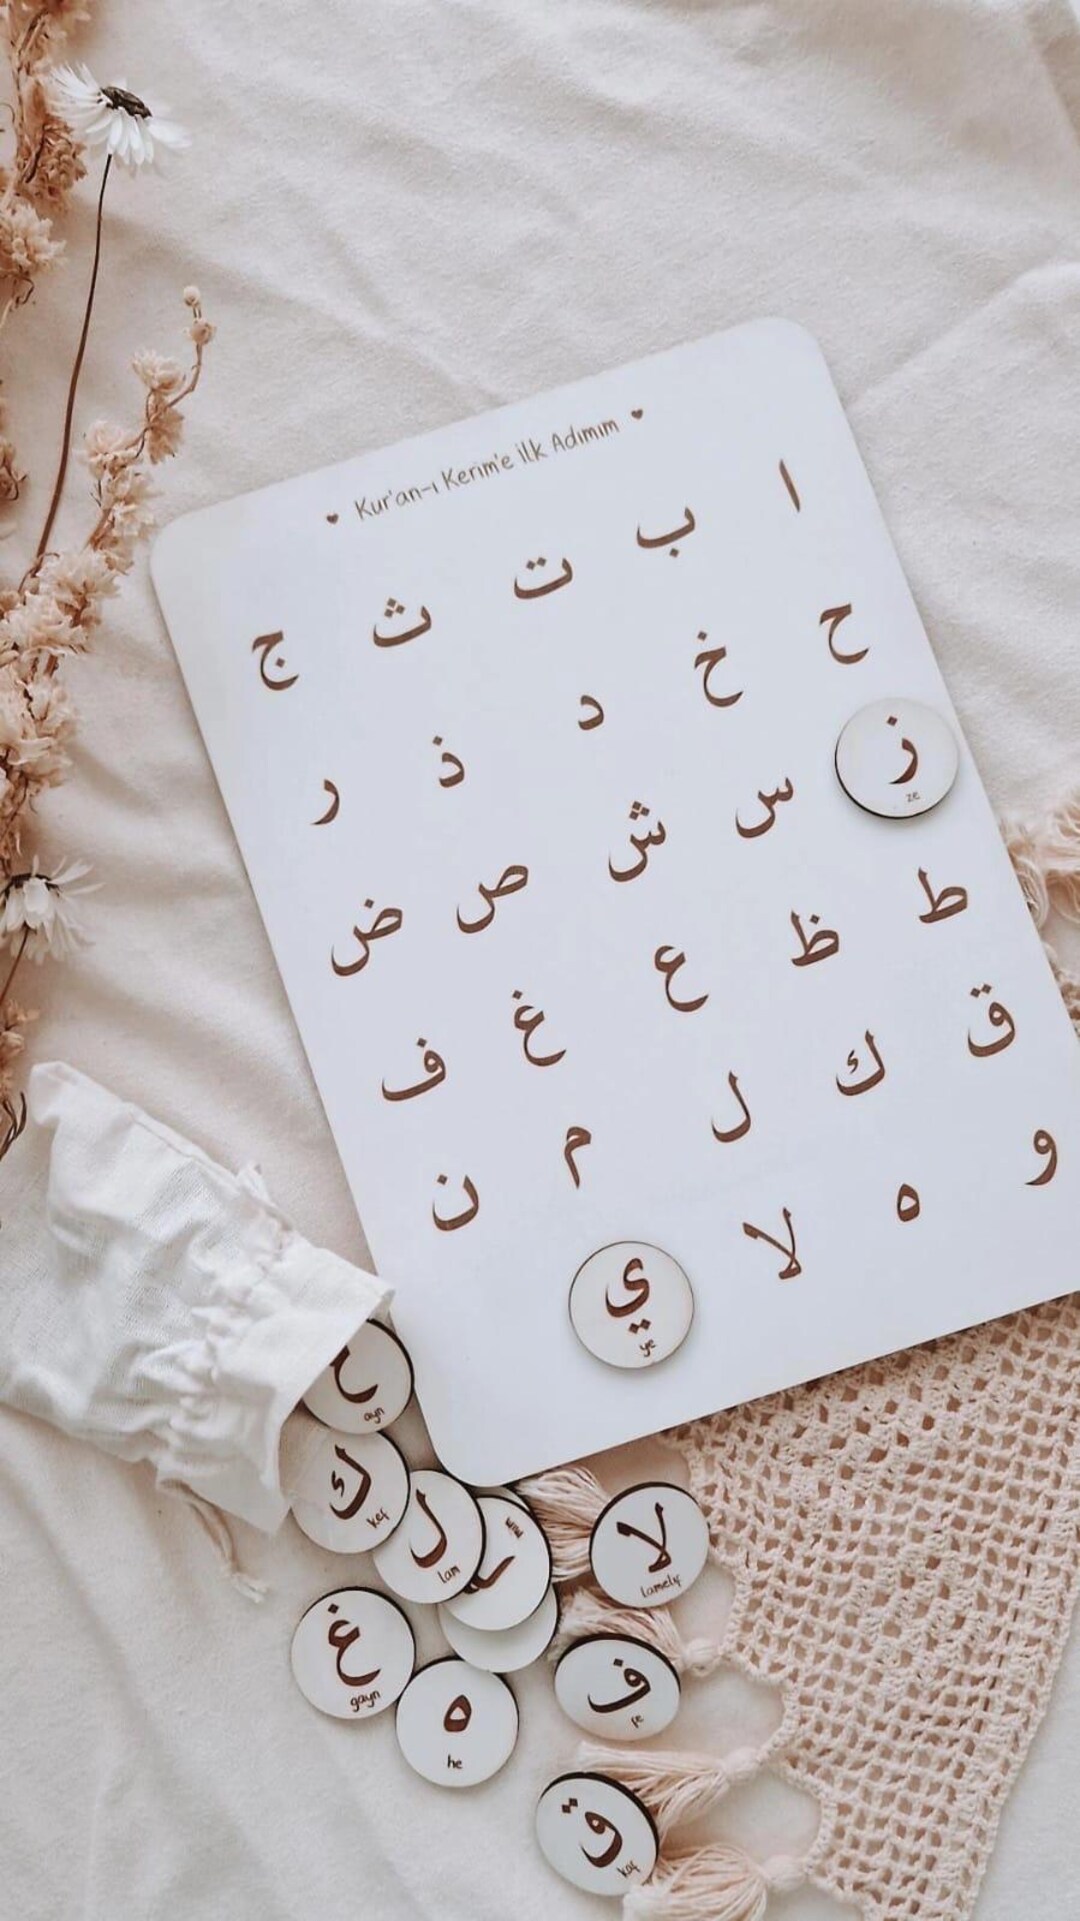 Kur'an-ı Kerim'e İlk Adımım
ا ب ت ث ج
ح خ د ذ ر
ز ze س ش ص ض
ط ظ ع غ ف
ق ك ل م ن
و ه لا ي ye
ayn
ك kef
ل lam
لا lamelif
غ gayn
ه he
ف fe
ق kaf